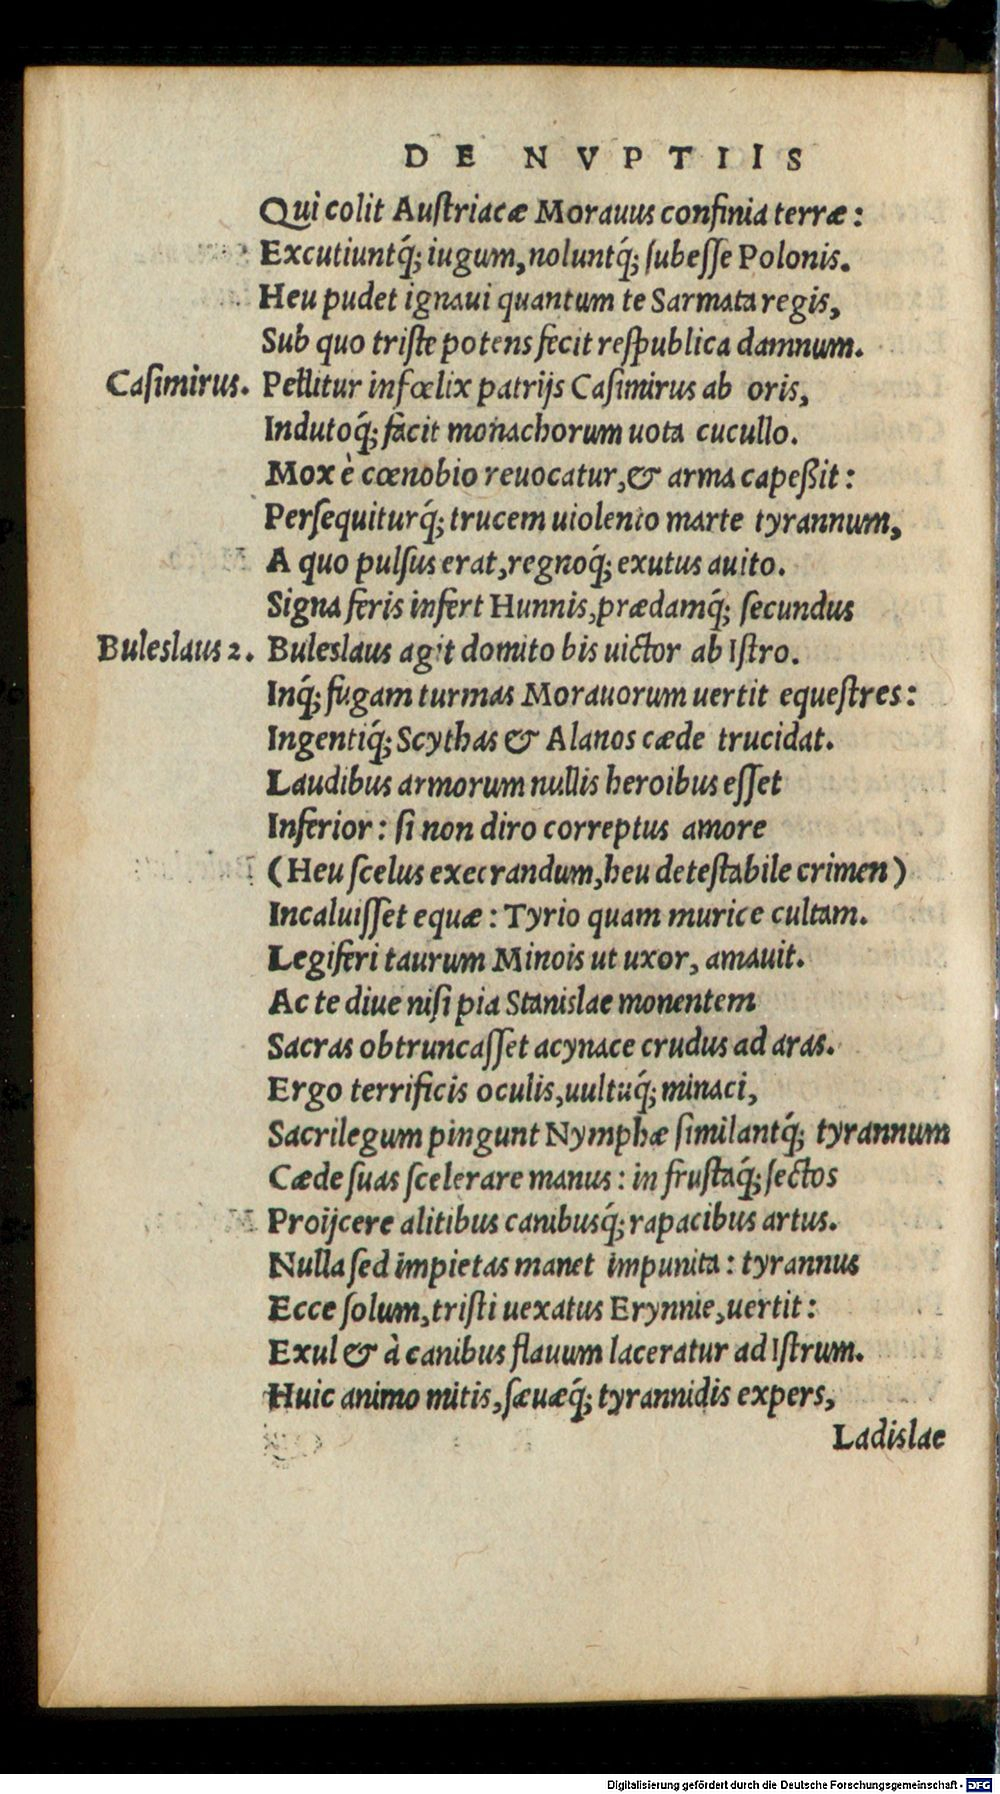 DE NVPTIIS
Qui colit Auſtriacæ Morauus confinia terræ:
Excutiuntq́; iugum, noluntq́; ſubeſſe Polonis.
Heu pudet ignaui quantum te Sarmata regis,
Sub quo triſte potens fecit reſpublica damnum.
Caſimirus. Pellitur infœlix patrijs Caſimirus ab oris,
Indutoq́; facit monachorum uota cucullo.
Mox è cœnobio reuocatur, & arma capeßit:
Perſequiturq́; trucem uiolento marte tyrannum,
A quo pulſus erat, regnoq́; exutus auito.
Signa feris infert Hunnis, prædamq́; ſecundus
Buleslaus 2. Buleslaus agit domito bis uictor ab Iſtro.
Inq́; fugam turmas Morauorum uertit equeſtres:
Ingentiq́; Scythas & Alanos cæde trucidat.
Laudibus armorum nullis heroibus eſſet
Inferior: ſi non diro correptus amore
(Heu ſcelus execrandum, heu deteſtabile crimen)
Incaluiſſet equæ: Tyrio quam murice cultam.
Legiferi taurum Minois ut uxor, amauit.
Ac te diue niſi pia Stanislae monentem
Sacras obtruncaſſet acynace crudus ad aras.
Ergo terrificis oculis, uultuq́; minaci,
Sacrilegum pingunt Nymphæ ſimilantq́; tyrannum
Cæde ſuas ſcelerare manus: in fruſtaq́; ſectos
Proijcere alitibus canibusq́; rapacibus artus.
Nulla ſed impietas manet impunita: tyrannus
Ecce ſolum, triſti uexatus Erynnie, uertit:
Exul & à canibus flauum laceratur ad Iſtrum.
Huic animo mitis, ſæuæq́; tyrannidis expers,
Ladislae
Digitalisierung gefördert durch die Deutsche Forschungsgemeinschaft - DFG